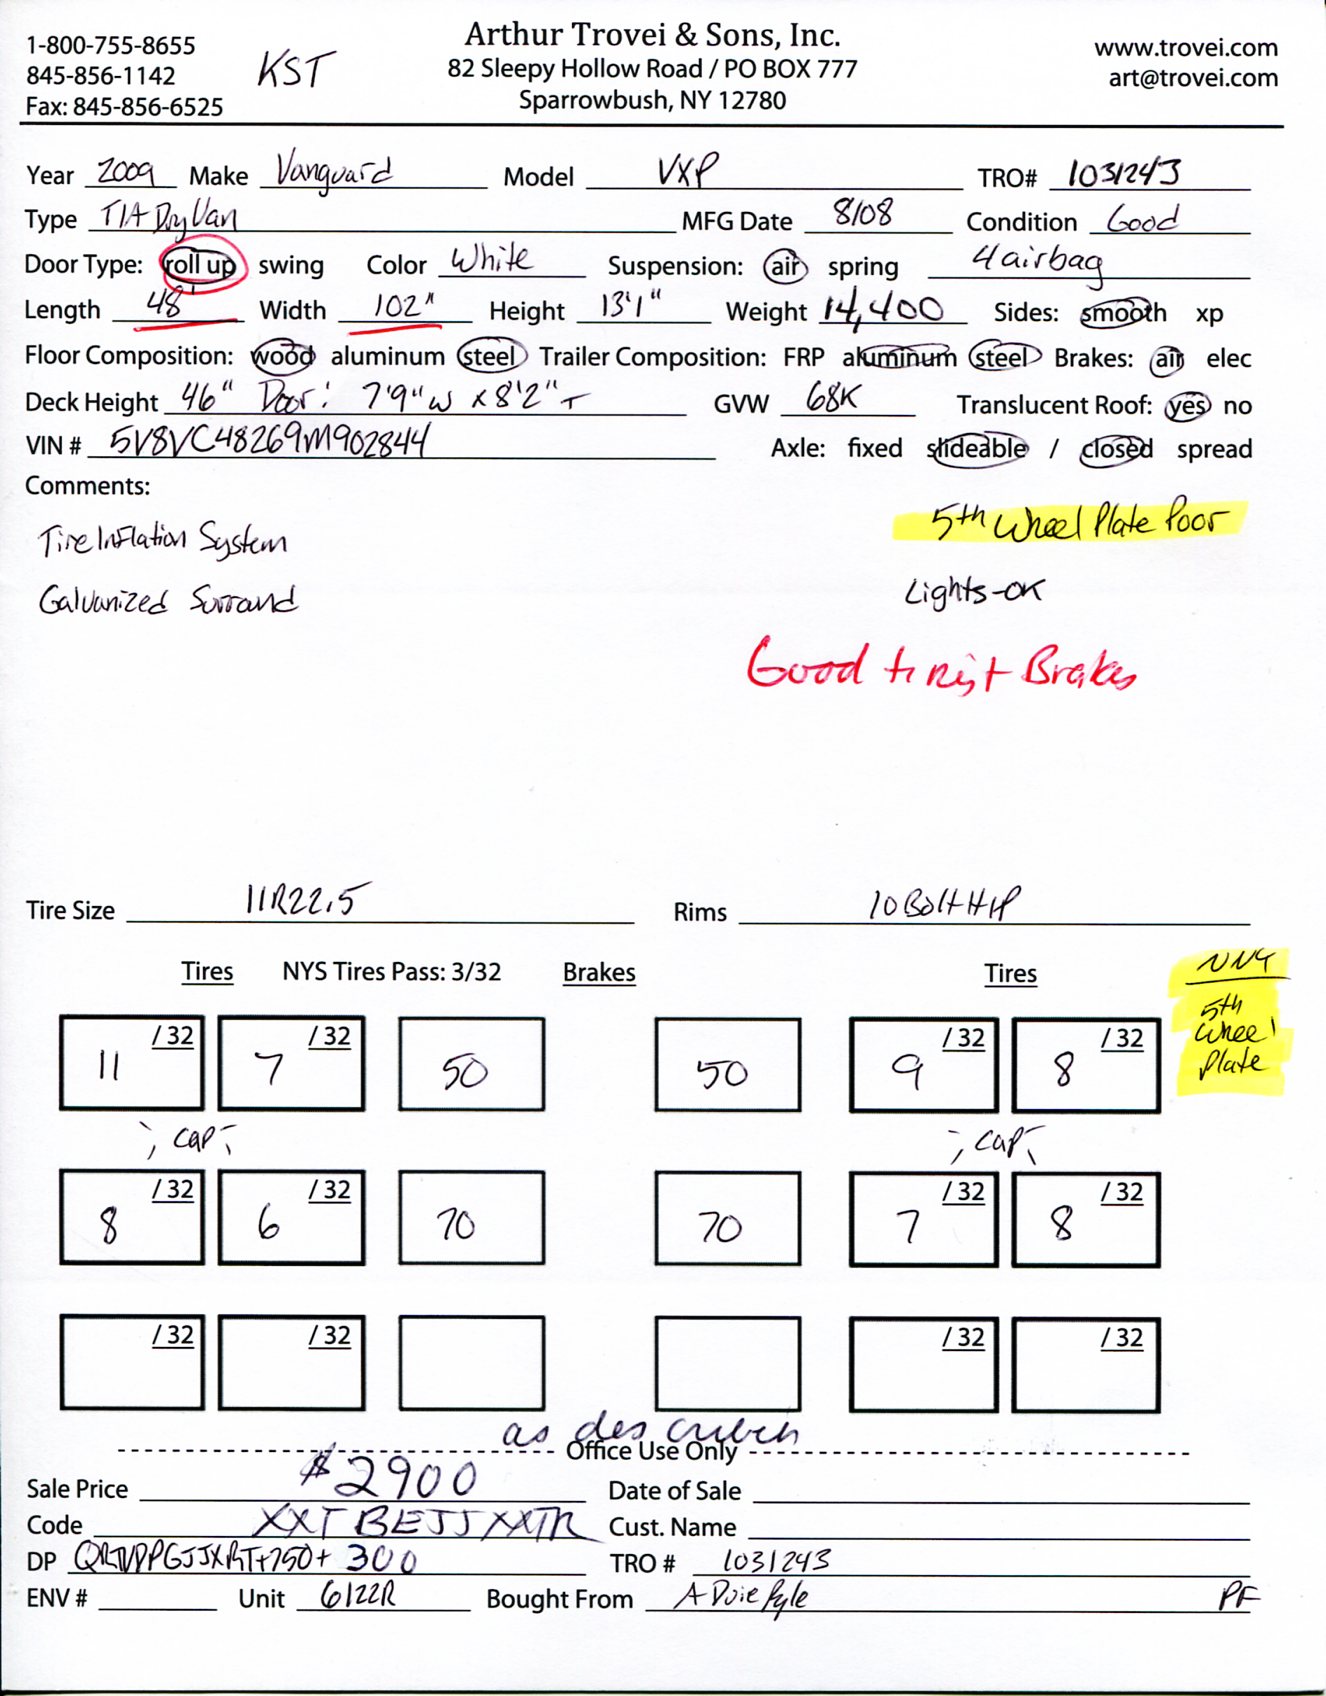 1-800-755-8655
845-856-1142
Fax: 845-856-6525
KST
Arthur Trovei & Sons, Inc.
82 Sleepy Hollow Road / PO BOX 777
Sparrowbush, NY 12780
www.trovei.com
art@trovei.com
Year 2009 Make Vanguard Model VXP TRO# 1031243
Type T/A Dry Van MFG Date 8/08 Condition Good
Door Type: roll up swing Color White Suspension: air spring 4 airbag
Length 48' Width 102" Height 13'1" Weight 14,400 Sides: smooth xp
Floor Composition: wood aluminum steel Trailer Composition: FRP aluminum steel Brakes: air elec
Deck Height 46" Door: 7'9"W x 8'2"T GVW 68K Translucent Roof: yes no
VIN # 5V8VC48269M902844 Axle: fixed slideable / closed spread
Comments:
Tire Inflation System
Galvanized Surround
5th Wheel Plate Poor
Lights-OK
Good Brakes
Tire Size 11R22.5 Rims 10 Bolt HP
Tires NYS Tires Pass: 3/32 Brakes Tires
5th Wheel Plate
11 /32 7 /32 50 50 9 /32 8 /32
, cap, , cap,
8 /32 6 /32 70 70 7 /32 8 /32
/32 /32 /32 /32
as
Office Use Only
Sale Price $2900 Date of Sale
Code XXTBEJJXXTR Cust. Name
DP +750+ 300 TRO # 1031243
ENV # Unit 6122R Bought From A Duie Pyle PF